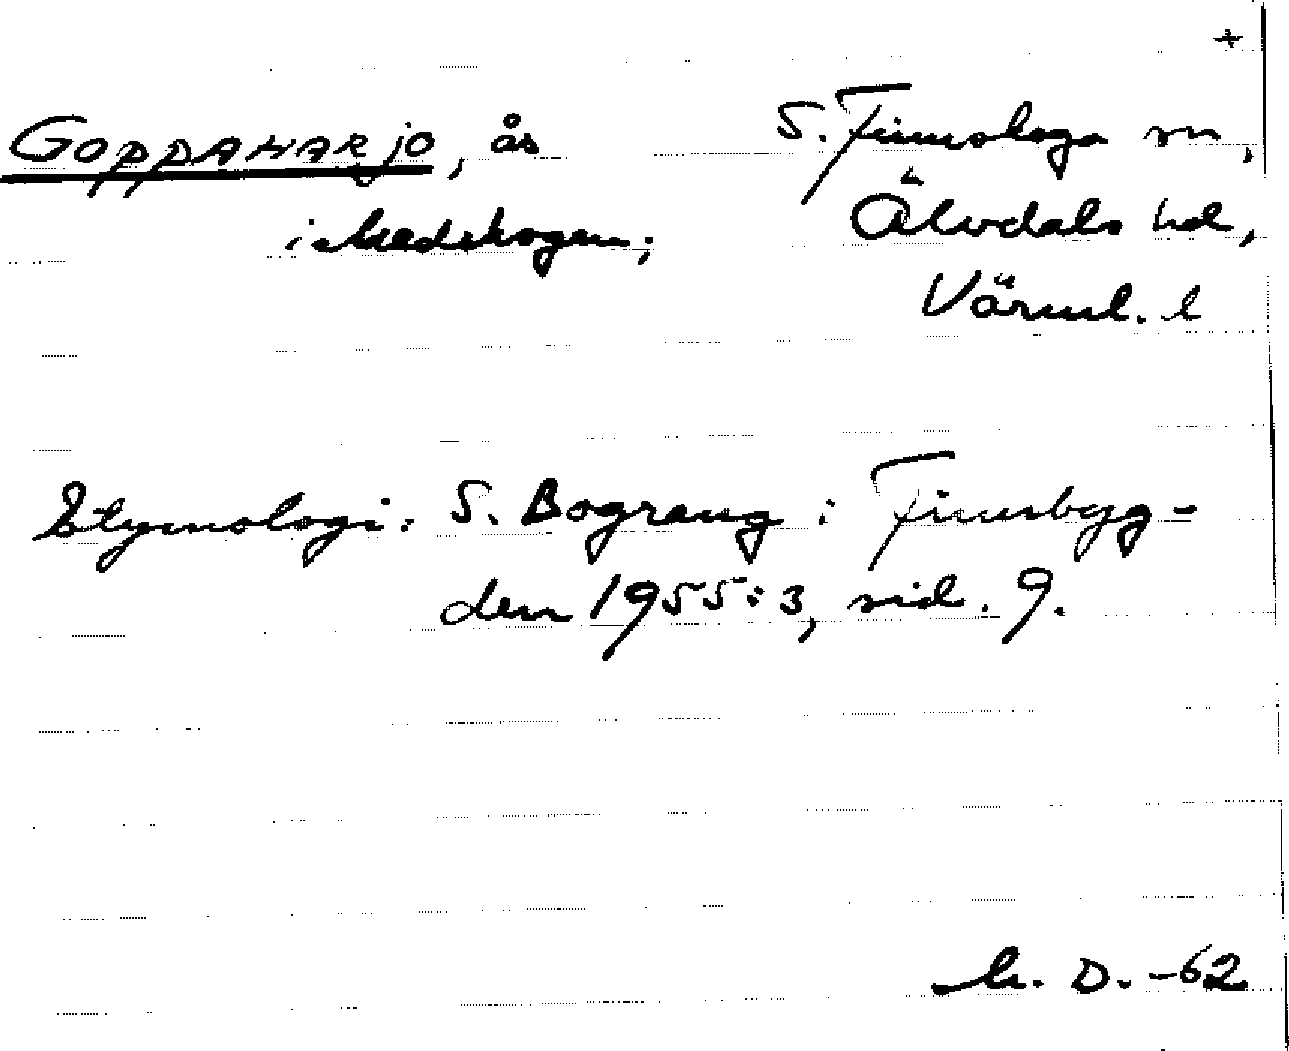 +
GOPPAHARJO, ås S. Finnskoga sn,
i Medskogen; Älvdals hd,
Värml. l
Etymologi: S. Bograng i Finnbyg-
den 1955:3, sid. 9.
D. -62